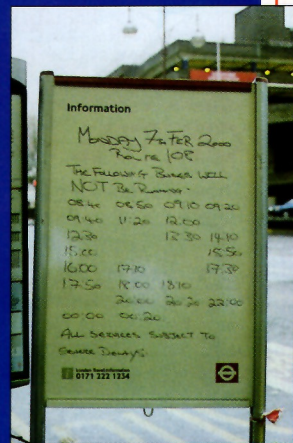 Information
MONDAY 7TH FEB 2000
ROUTE 108
THE FOLLOWING BUSES WILL
NOT BE RUNNING-
08:40 08:50 09:10 09:20
09:40 11:20 12:00
12:30 13:30 14:10
15:00 15:50
16:00 17:10 17:30
17:50 18:00 18:10
20:00 20:20 22:00
00:00 00:20
ALL SERVICES SUBJECT TO
DELAYS.
London Travel Information
0171 222 1234